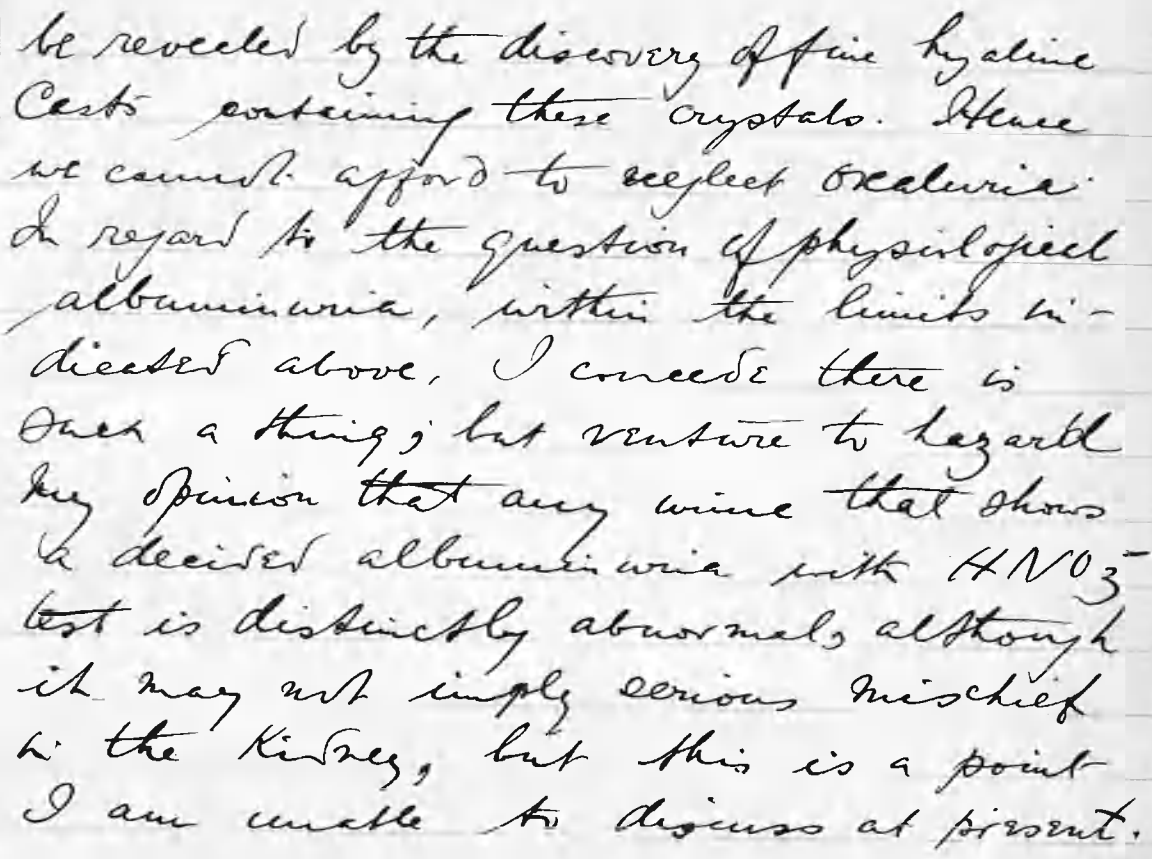 be revealed by the discovery of fine hyaline
Casts containing these crystals. Hence
we cannot afford to neglect oxaluria.
In regard to the question of physiological
albuminuria, within the limits in-
dicated above, I concede there is
such a thing; but venture to hazard
my opinion that any urine that shows
a decided albuminuria with HNO3-
test is distinctly abnormal, although
it may not imply serious mischief
in the Kidney, but this is a point
I am unable to discuss at present.